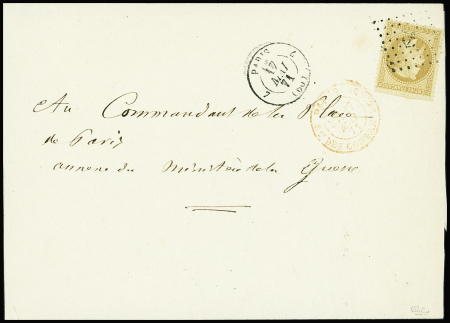 PARIS
17
MAI
71
(60)
Au Commandant de la Place
de Paris
annexe du Ministère de la Guerre